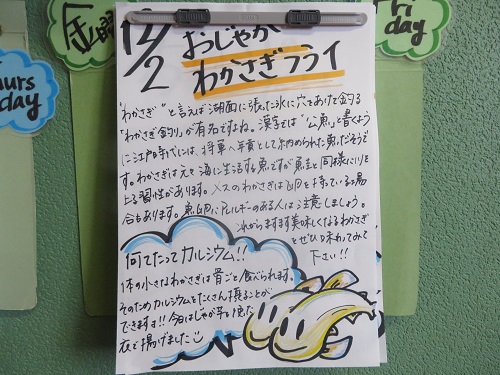 金曜
Fri
day
hurs
day
12/2
おじゃが
わかさぎフライ
"わかさぎ"と言えば湖面に張った氷に穴をあけて釣る
"わかさぎ釣り"が有名ですね。漢字では"公魚"と書くよう
に江戸時代には、将軍へ年貢として納められた魚だそうで
す。わかさぎは元々海に生活する魚ですが鮭と同様に川を
上る習性があります。メスのわかさぎは卵を持っている場
合もあります。魚卵にアレルギーのある人は注意しましょう。
これからますます美味しくなるわかさぎ
をぜひ味わってみて
下さい!!
何てたってカルシウム!!
1体の小さなわかさぎは骨ごと食べられます。
そのためカルシウムをたくさん摂ることが
できます!!今日はじゃが芋を使った
衣で揚げました